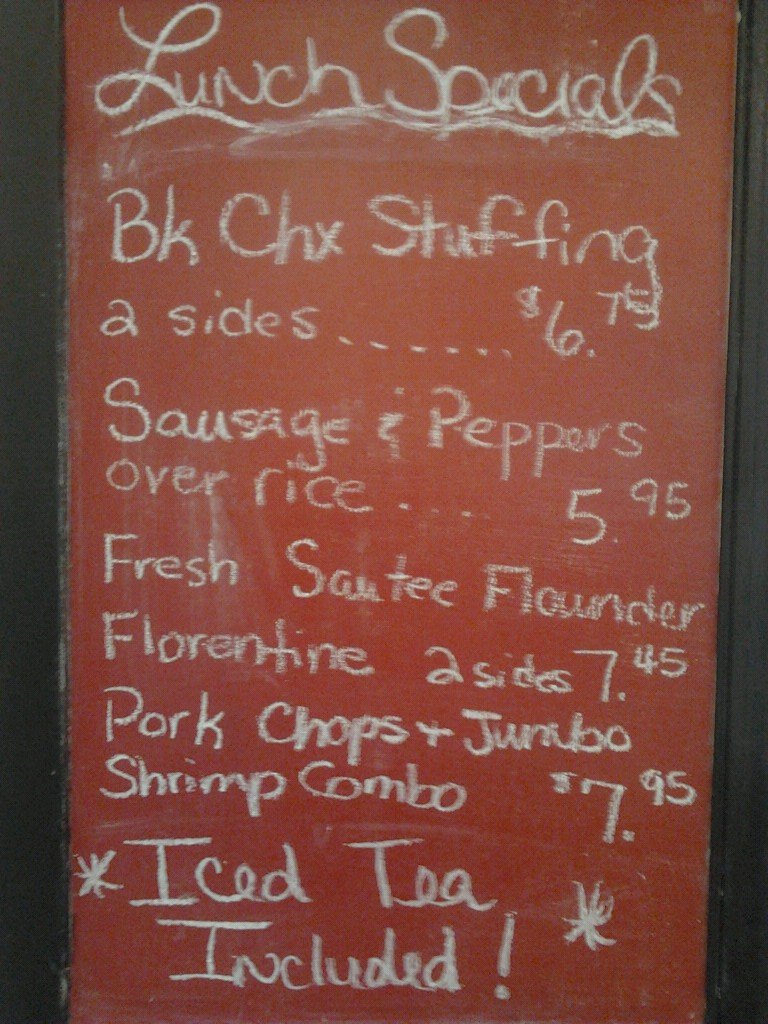 Lunch Specials
Bk Chx Stuffing
2 sides ....... $6.75
Sausage & Peppers
over rice .... 5.95
Fresh Sautee Flounder
Florentine 2 sides 7.45
Pork Chops + Jumbo
Shrimp Combo $7.95
* Iced Tea *
Included!